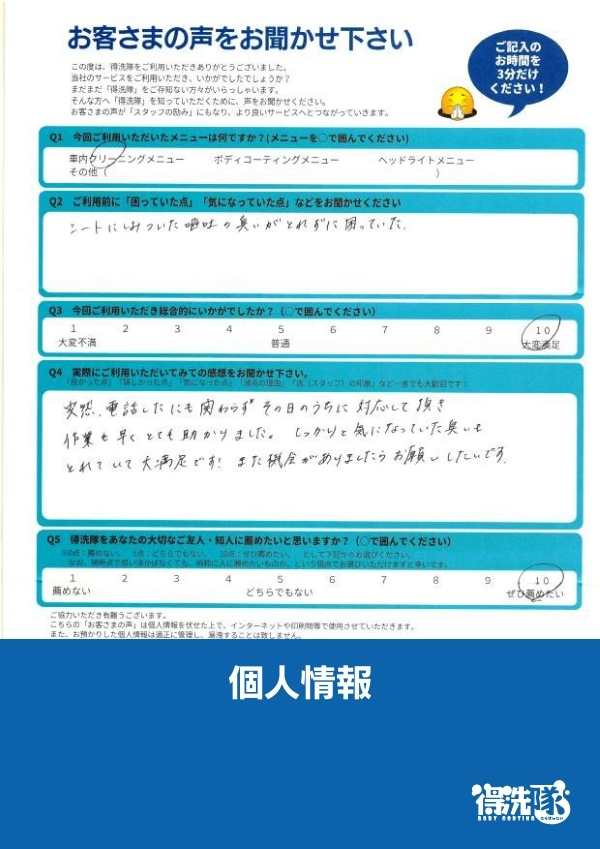 お客さまの声をお聞かせ下さい
ご記入の
お時間を
3分だけ
ください!
この度は、得洗隊をご利用いただきありがとうございました。
当社のサービスをご利用いただき、いかがでしたでしょうか?
まだまだ「得洗隊」をご存知ない方々がいらっしゃいます。
そんな方へ「得洗隊」を知っていただくために、声をお聞かせください。
お客さまの声が「スタッフの励み」にもなり、より良いサービスへとつながっていきます。
Q1 今回ご利用いただいたメニューは何ですか?(メニューを○で囲んでください)
車内クリーニングメニュー ボディコーティングメニュー ヘッドライトメニュー
その他 ( )
Q2 ご利用前に「困っていた点」「気になっていた点」などをお聞かせください
シートにしみついた嘔吐の臭いがとれずに困っていた.
Q3 今回ご利用いただき総合的にいかがでしたか?(○で囲んでください)
1 2 3 4 5 6 7 8 9 10
大変不満 普通 大変満足
Q4 実際にご利用いただいてみての感想をお聞かせ下さい。
「良かった点」「嬉しかった点」「気になった点」「満点の理由」「店(スタッフ)の印象」など一言でも大歓迎です!
突然、電話したにも関わらずその日のうちに対応して頂き
作業も早くとても助かりました。しっかりと気になっていた臭いも
とれていて大満足です! また機会がありましたらお願いしたいです.
Q5 得洗隊をあなたの大切なご友人・知人に薦めたいと思いますか?(○で囲んでください)
1 2 3 4 5 6 7 8 9 10
薦めない どちらでもない ぜひ薦めたい
ご協力いただき有難うございます。
こちらの「お客さまの声」は個人情報を伏せた上で、インターネットや印刷物等で使用させていただきます。
また、お預かりした個人情報は適正に管理し、漏洩することは致しません。
個人情報
得洗隊
BODY COATING